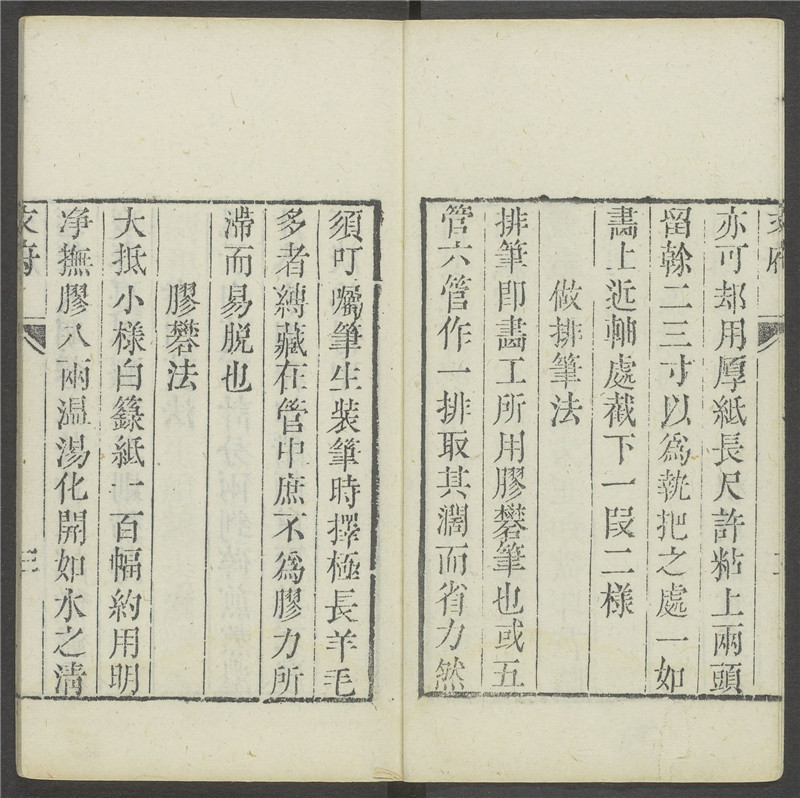 亦可却用厚紙長尺許粘上兩頭
留餘二三寸以為執把之處一如
畵上近軸處截下一叚二樣
做排筆法
排筆即畵工所用膠礬筆也或五
管六管作一排取其濶而省力然
須叮囑筆生裝筆時擇極長羊毛
多者縛藏在管中庶不為膠力所
滯而易脱也
膠礬法
大抵小樣白籙紙一百幅約用明
净撫膠八兩温湯化開如水之清
三